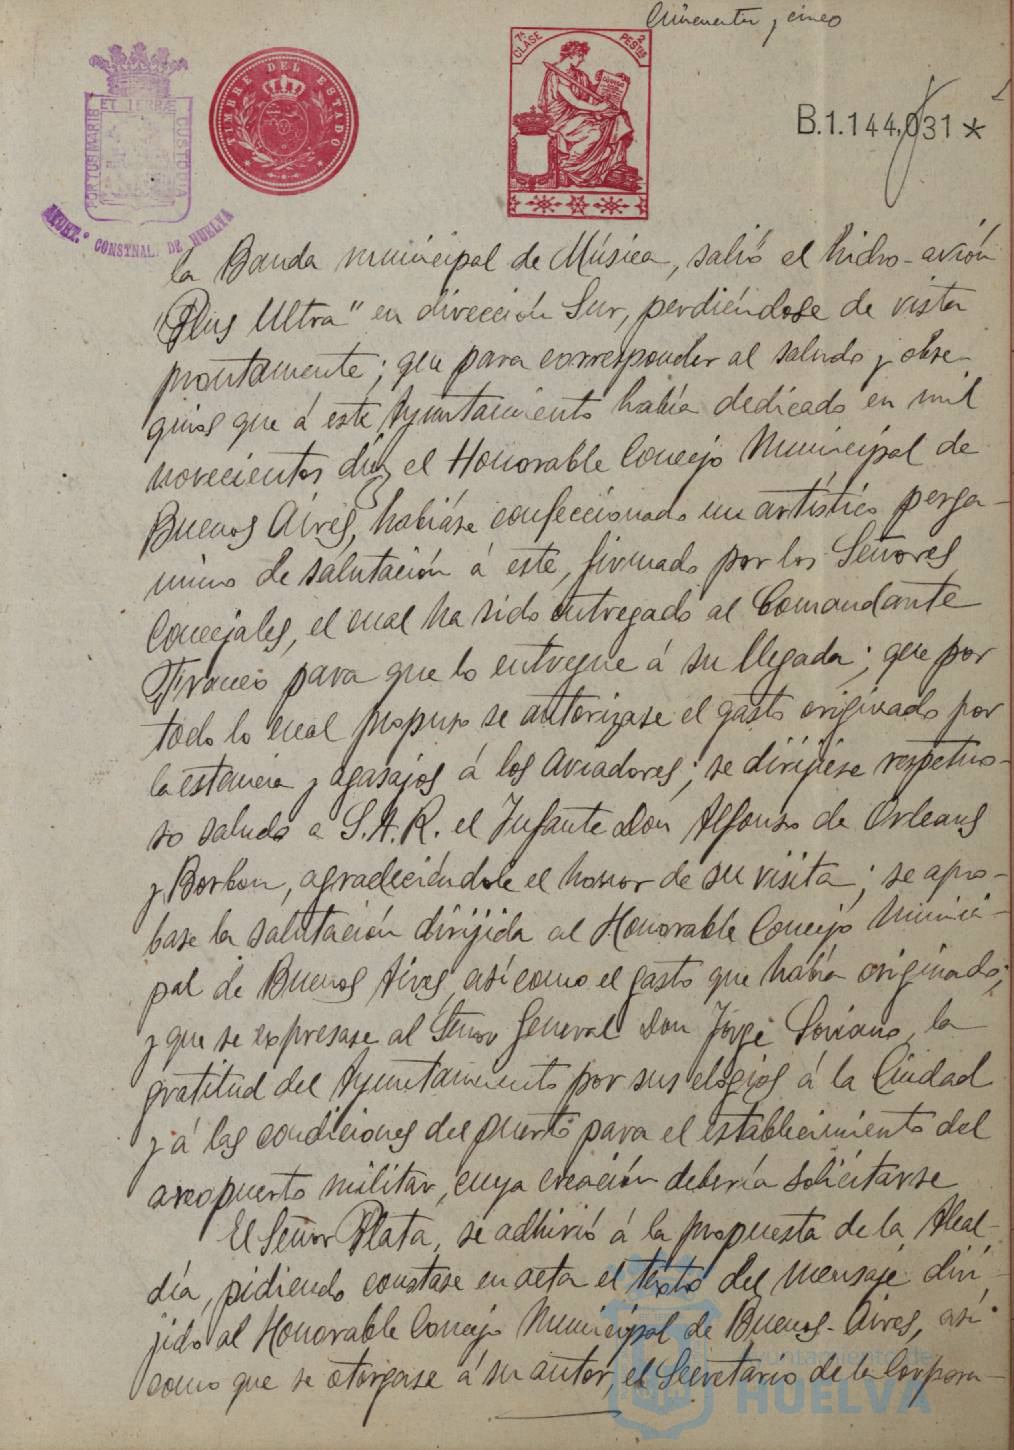 Cincuenta y cinco
7ª CLASE
2 PESTAS
TIMBRE DEL ESTADO
PORTUS MARIS ET TERRÆ CUSTODIA
AYUNT.º CONSTNAL. DE HUELVA
B.1.144,031 *
la Banda municipal de Música, salió el hidro-avión
"Plus Ultra" en dirección Sur, perdiéndose de vista
prontamente; que para corresponder al saludo y obse-
quios que á este Ayuntamiento había dedicado en mil
novecientos diez el Honorable Concejo Municipal de
Buenos Aires, habiáse confeccionado un artístico perga-
mino de salutación á este, firmado por los Señores
Concejales, el cual ha sido entregado al Comandante
Franco para que lo entregue á su llegada; que por
todo lo cual propuso se autorizase el gasto originado por
la estancia y agasajos á los Aviadores; se dirijiese respetuo-
so saludo a S.A.R. el Infante Don Alfonso de Orleans
y Borbon, agradeciéndole el honor de su visita; se apro-
base la salutación dirijida al Honorable Concejo Munici-
pal de Buenos Aires, así como el gasto que había originado;
y que se expresase al Señor General Don Jorge Soriano, la
gratitud del Ayuntamiento por sus elogios á la Ciudad
y á las condiciones del puerto para el establecimiento del
areopuerto militar, cuya creación debería solicitarse
El Señor Plata, se adhirió á la propuesta de la Alcal-
día, pidiendo constase en acta el texto del mensaje diri-
jido al Honorable Concejo Municipal de Buenos-Aires, así
como que se otorgase á su autor, el Secretario de la Corpora-
Ayuntamiento de
HUELVA